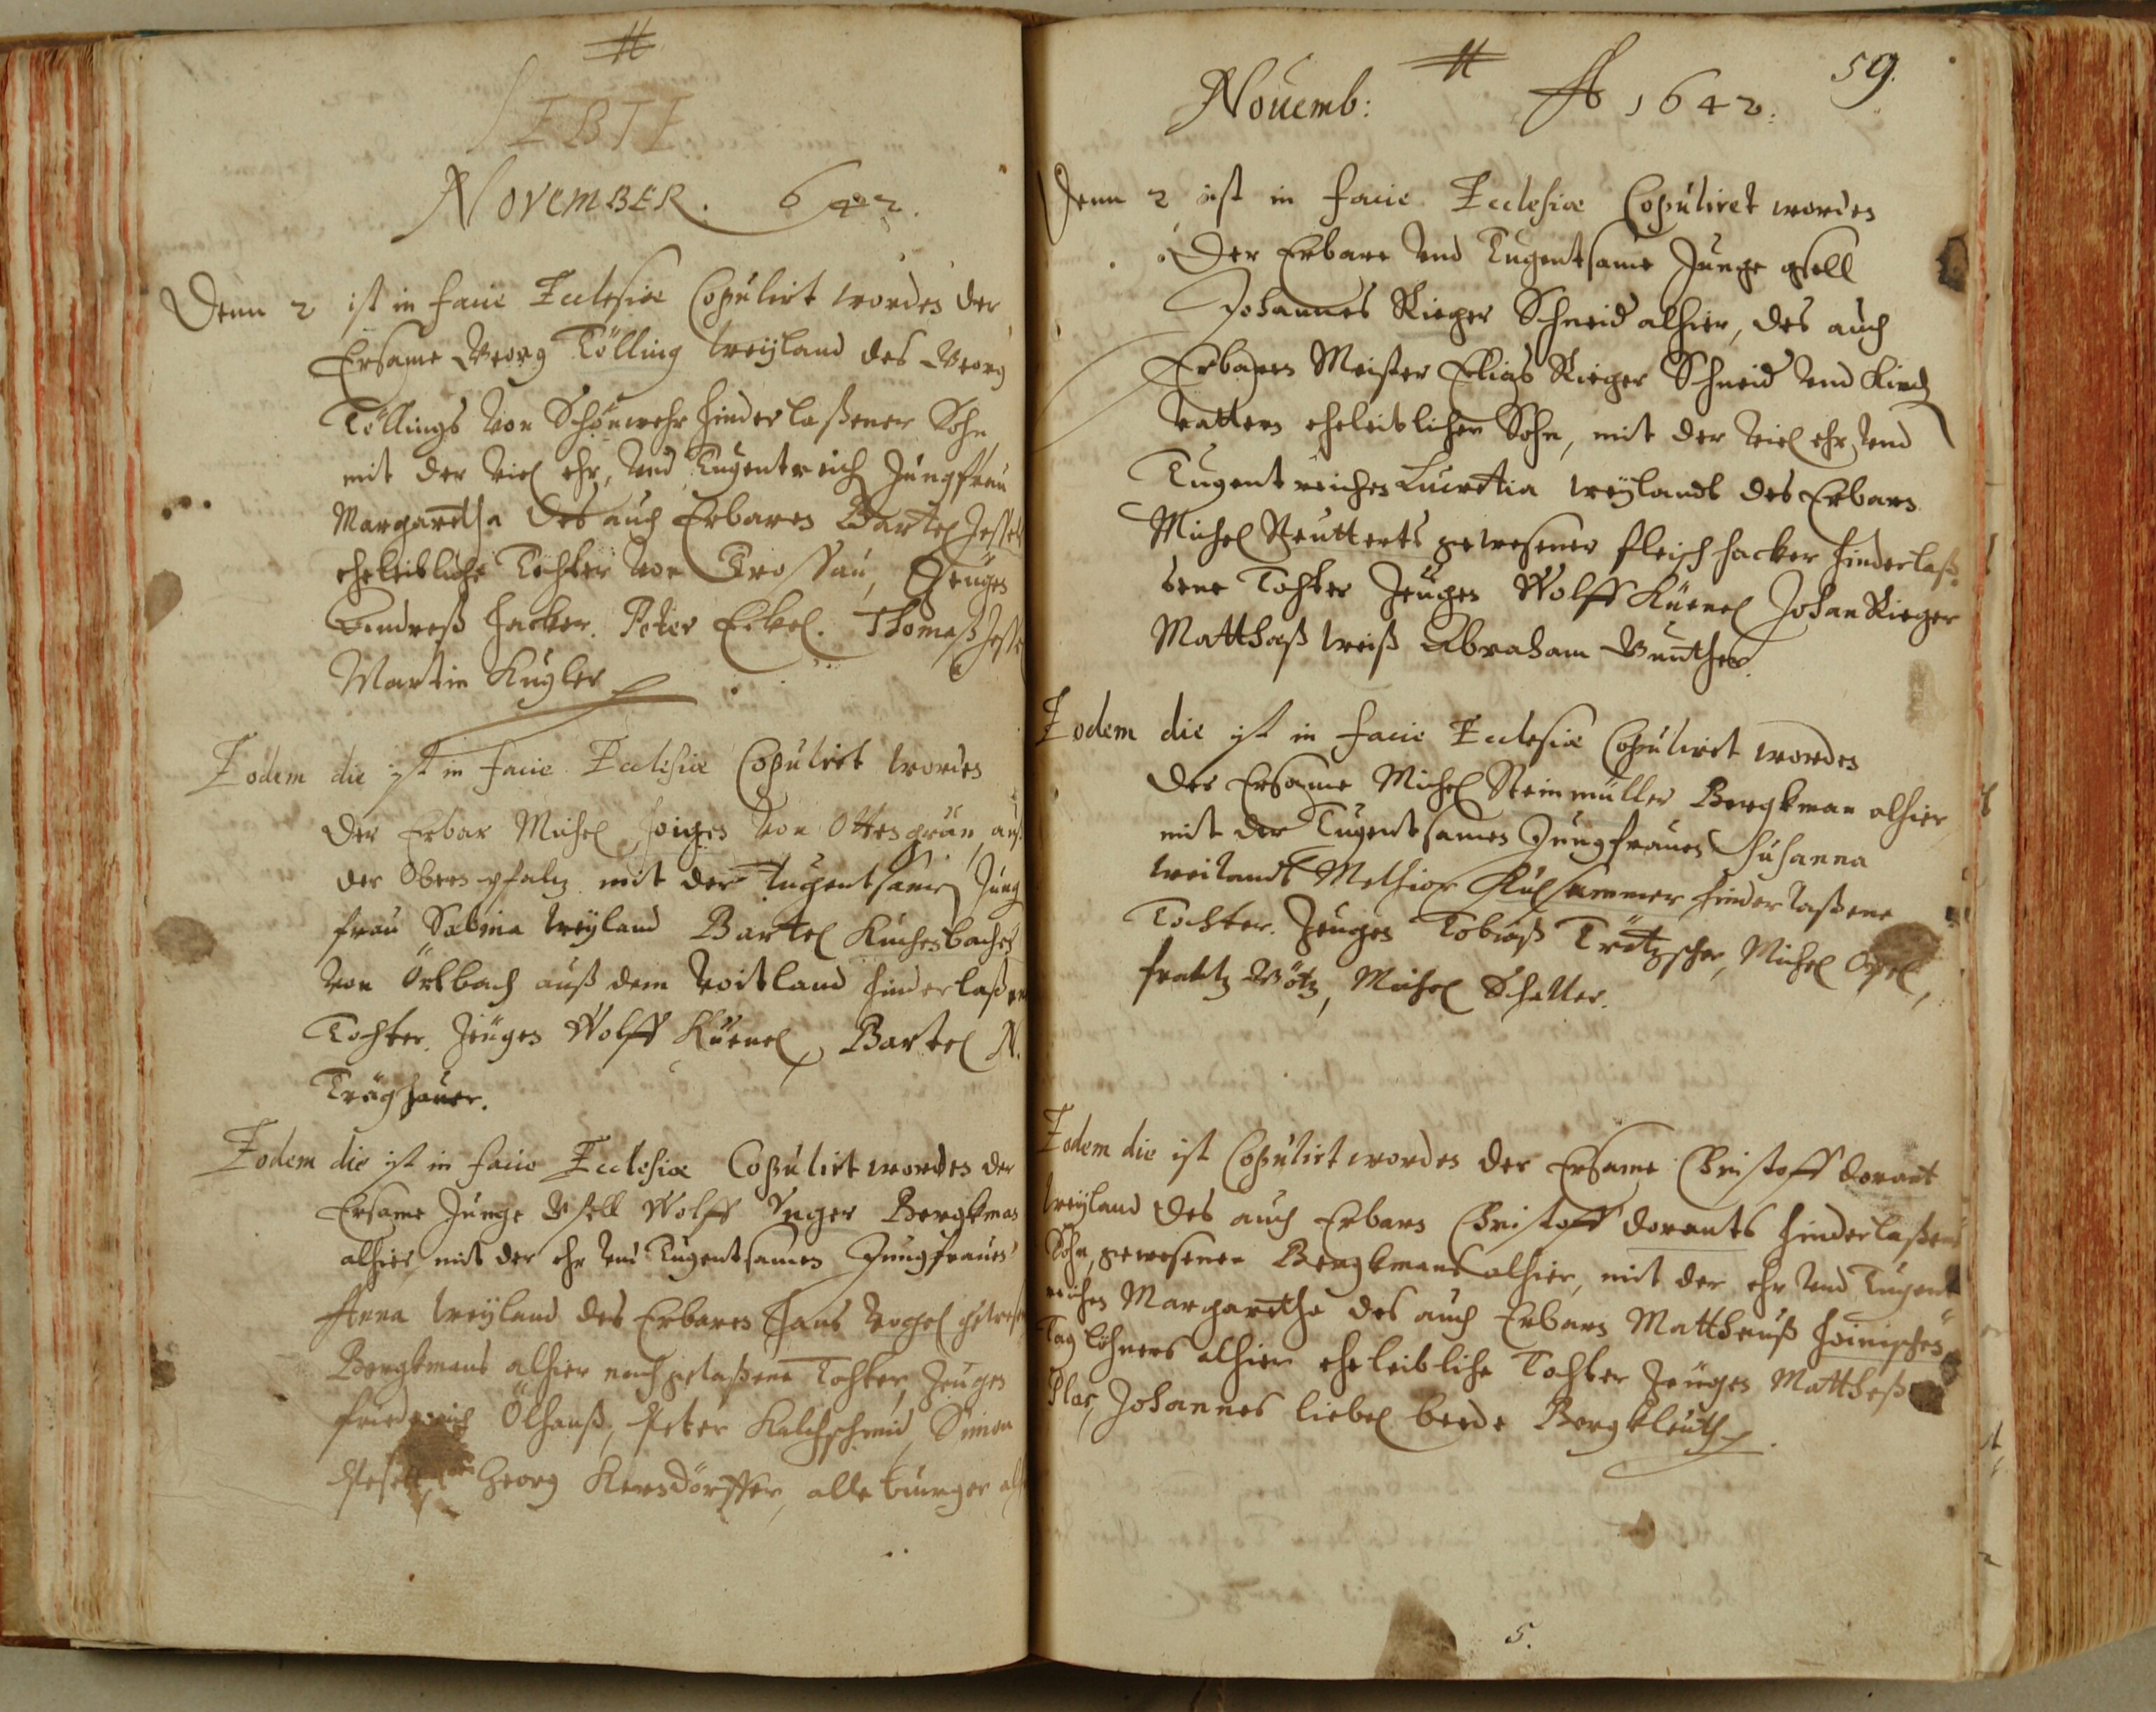 NOVEMBER. 642.
Denn 2 ist in facie Ecclesiæ Copulirt worden der
Ersame Georg Tölling weyland des Georg
Töllings von Schönwehr hinderlaßener Sohn
mit der viel ehr, und Tugentreich Jungfrau
Margaretha des auch Erbaren Bartel
eheleibliche Tochter von Trossau, Zeugen
Andreß Hacker. Peter Eckel. Thomaß
Martin Kugler
Eodem die ist in facie Ecclesiæ Copulirt worden
der Erbar Michel Hoiger von Ottengrün, auß
der Obern pfaltz mit der Tugentsamen Jung
frau Sabina weyland Bartel Kuchenbachers
von Örlbach auß dem Voitland hinderlaßene
Tochter. Zeugen Wolff Küenel, Bartel N.
Eodem die ist in facie Ecclesiæ Copulirt worden der
Ersame Junge Gsell Wolff Unger Bergkman
alhier mit der ehr und Tugentsamen Jungfrauen
Anna weyland des Erbaren Hans Vogel gewesen
Bergkmans alhier nachgelaßene Tochter, Zeugen
Friedreich Ölhanß, Peter Kalchschmid, Simon
Georg Kersdörffer, alle burger
59.
Nouemb: Ao 1642.
Denn 2 ist in facie Ecclesiæ Copuliret worden
Der Erbare und Tugentsame Junge gsell
Johannes Rieger Schneid alhier, des auch
Erbaren Meister Elias Rieger Schneid und Kirch
vattern eheleiblichen Sohn, mit der viel ehr und
Tugentreichen Lucretia weylandt des Erbarn
Michel Reutterts gewesener fleischhacker hinderlaß
bene Tochter Zeugen Wolff Küenel Johan Rieger
Matthaß weiß Abraham Gunther.
Eodem die ist in facie Ecclesiæ Copuliret worden
der Ersame Michel Steinmüller Bergkman alhier
mit der Tugentsamen Jungfrauen Susanna
weilandt Melchior Kulhammer hinderlaßene
Tochter. Zeugen Tobiaß Trötzscher, Michel Opel,
frantz Götz, Michel Schaller.
Eodem die ist Copulirt worden der Ersame Christoff Dorant
weyland des auch Erbarn Christoff Dorants hinderlaßener
Sohn, gewesenen Bergkmans alhier, mit der ehr und Tugent
reichen Margaretha des auch Erbarn Mattheuß Hoinischen
Taglöhners alhier eheleibliche Tochter Zeugen Mattheß
Plas, Johannes liebel beede Bergkleuth.
5.